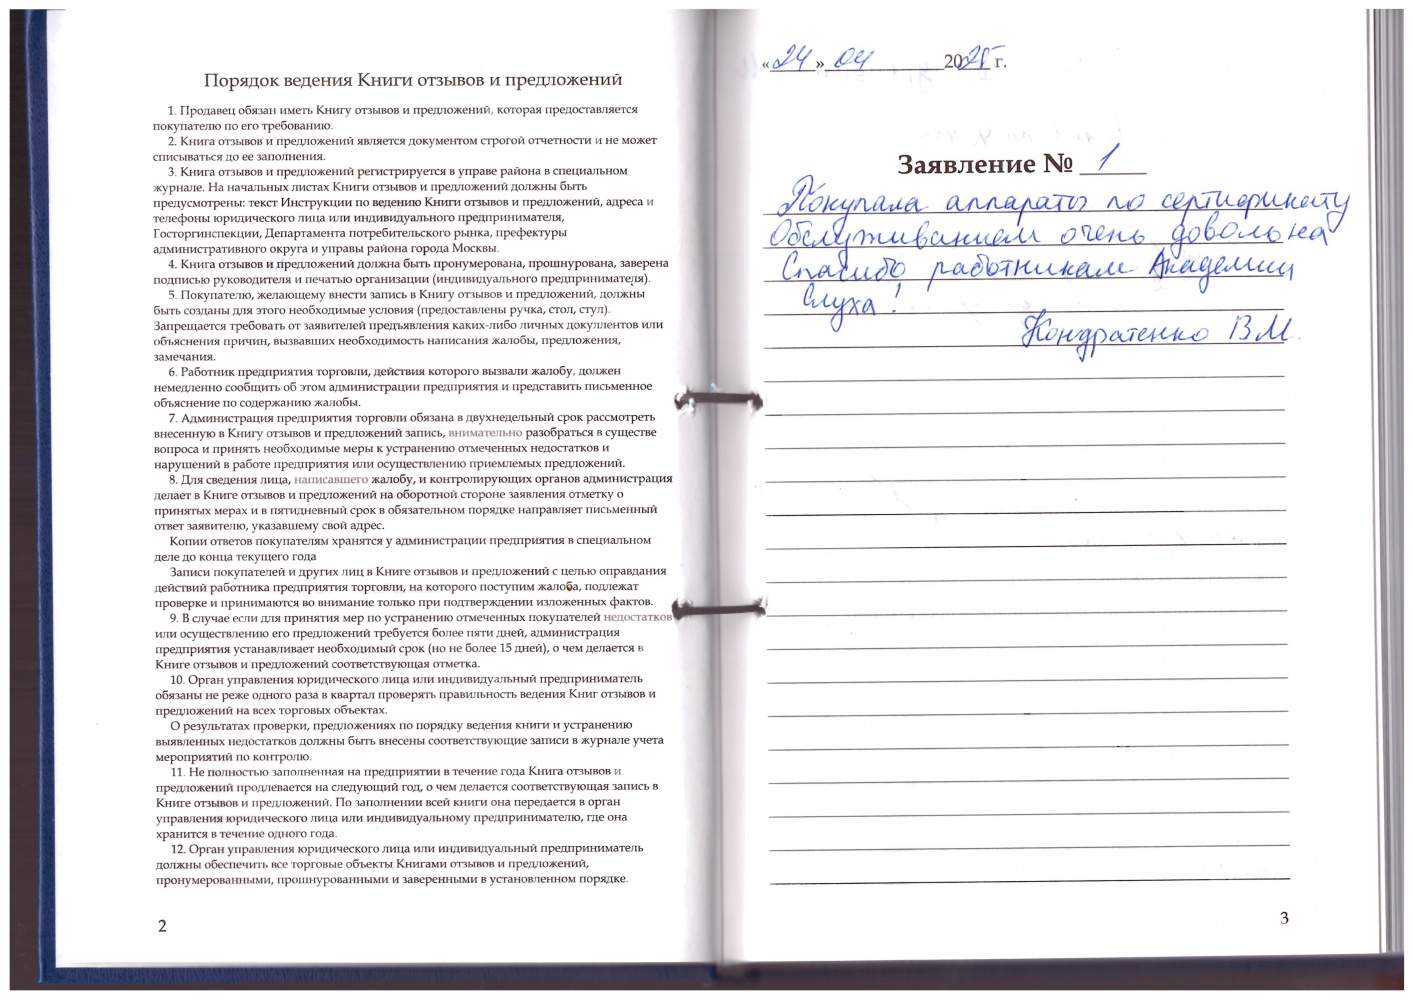 Порядок ведения Книги отзывов и предложений
1. Продавец обязан иметь Книгу отзывов и предложений, которая предоставляется
покупателю по его требованию.
2. Книга отзывов и предложений является документом строгой отчетности и не может
списываться до ее заполнения.
3. Книга отзывов и предложений регистрируется в управе района в специальном
журнале. На начальных листах Книги отзывов и предложений должны быть
предусмотрены: текст Инструкции по ведению Книги отзывов и предложений, адреса и
телефоны юридического лица или индивидуального предпринимателя,
Госторгинспекции, Департамента потребительского рынка, префектуры
административного округа и управы района города Москвы.
4. Книга отзывов и предложений должна быть пронумерована, прошнурована, заверена
подписью руководителя и печатью организации (индивидуального предпринимателя).
5. Покупателю, желающему внести запись в Книгу отзывов и предложений, должны
быть созданы для этого необходимые условия (предоставлены ручка, стол, стул).
Запрещается требовать от заявителей предъявления каких-либо личных докуллентов или
объяснения причин, вызвавших необходимость написания жалобы, предложения,
замечания.
6. Работник предприятия торговли, действия которого вызвали жалобу, должен
немедленно сообщить об этом администрации предприятия и представить письменное
объяснение по содержанию жалобы.
7. Администрация предприятия торговли обязана в двухнедельный срок рассмотреть
внесенную в Книгу отзывов и предложений запись, внимательно разобраться в существе
вопроса и принять необходимые меры к устранению отмеченных недостатков и
нарушений в работе предприятия или осуществлению приемлемых предложений.
8. Для сведения лица, написавшего жалобу, и контролирующих органов администрация
делает в Книге отзывов и предложений на оборотной стороне заявления отметку о
принятых мерах и в пятидневный срок в обязательном порядке направляет письменный
ответ заявителю, указавшему свой адрес.
Копии ответов покупателям хранятся у администрации предприятия в специальном
деле до конца текущего года
Записи покупателей и других лиц в Книге отзывов и предложений с целью оправдания
действий работника предприятия торговли, на которого поступим жалоба, подлежат
проверке и принимаются во внимание только при подтверждении изложенных фактов.
9. В случае если для принятия мер по устранению отмеченных покупателей недостатков
или осуществлению его предложений требуется более пяти дней, администрация
предприятия устанавливает необходимый срок (но не более 15 дней), о чем делается в
Книге отзывов и предложений соответствующая отметка.
10. Орган управления юридического лица или индивидуальный предприниматель
обязаны не реже одного раза в квартал проверять правильность ведения Книг отзывов и
предложений на всех торговых объектах.
О результатах проверки, предложениях по порядку ведения книги и устранению
выявленных недостатков должны быть внесены соответствующие записи в журнале учета
мероприятий по контролю.
11. Не полностью заполненная на предприятии в течение года Книга отзывов и
предложений продлевается на следующий год, о чем делается соответствующая запись в
Книге отзывов и предложений. По заполнении всей книги она передается в орган
управления юридического лица или индивидуальному предпринимателю, где она
хранится в течение одного года.
12. Орган управления юридического лица или индивидуальный предприниматель
должны обеспечить все торговые объекты Книгами отзывов и предложений,
пронумерованными, прошнурованными и заверенными в установленном порядке.
2
«24» 04 2025 г.
Заявление № 1
Покупала аппараты по сертификату
Обслуживанием очень довольна
Спасибо работникам Академии
Слуха!
Кондратенко В.М.
3